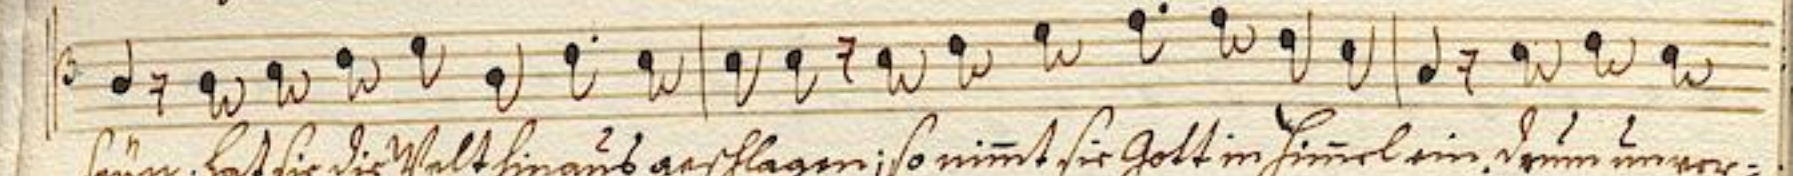 seyn. hat sie die Welt hinaus geschlagen; so nimt sie Gott in Himel ein, drum unver: